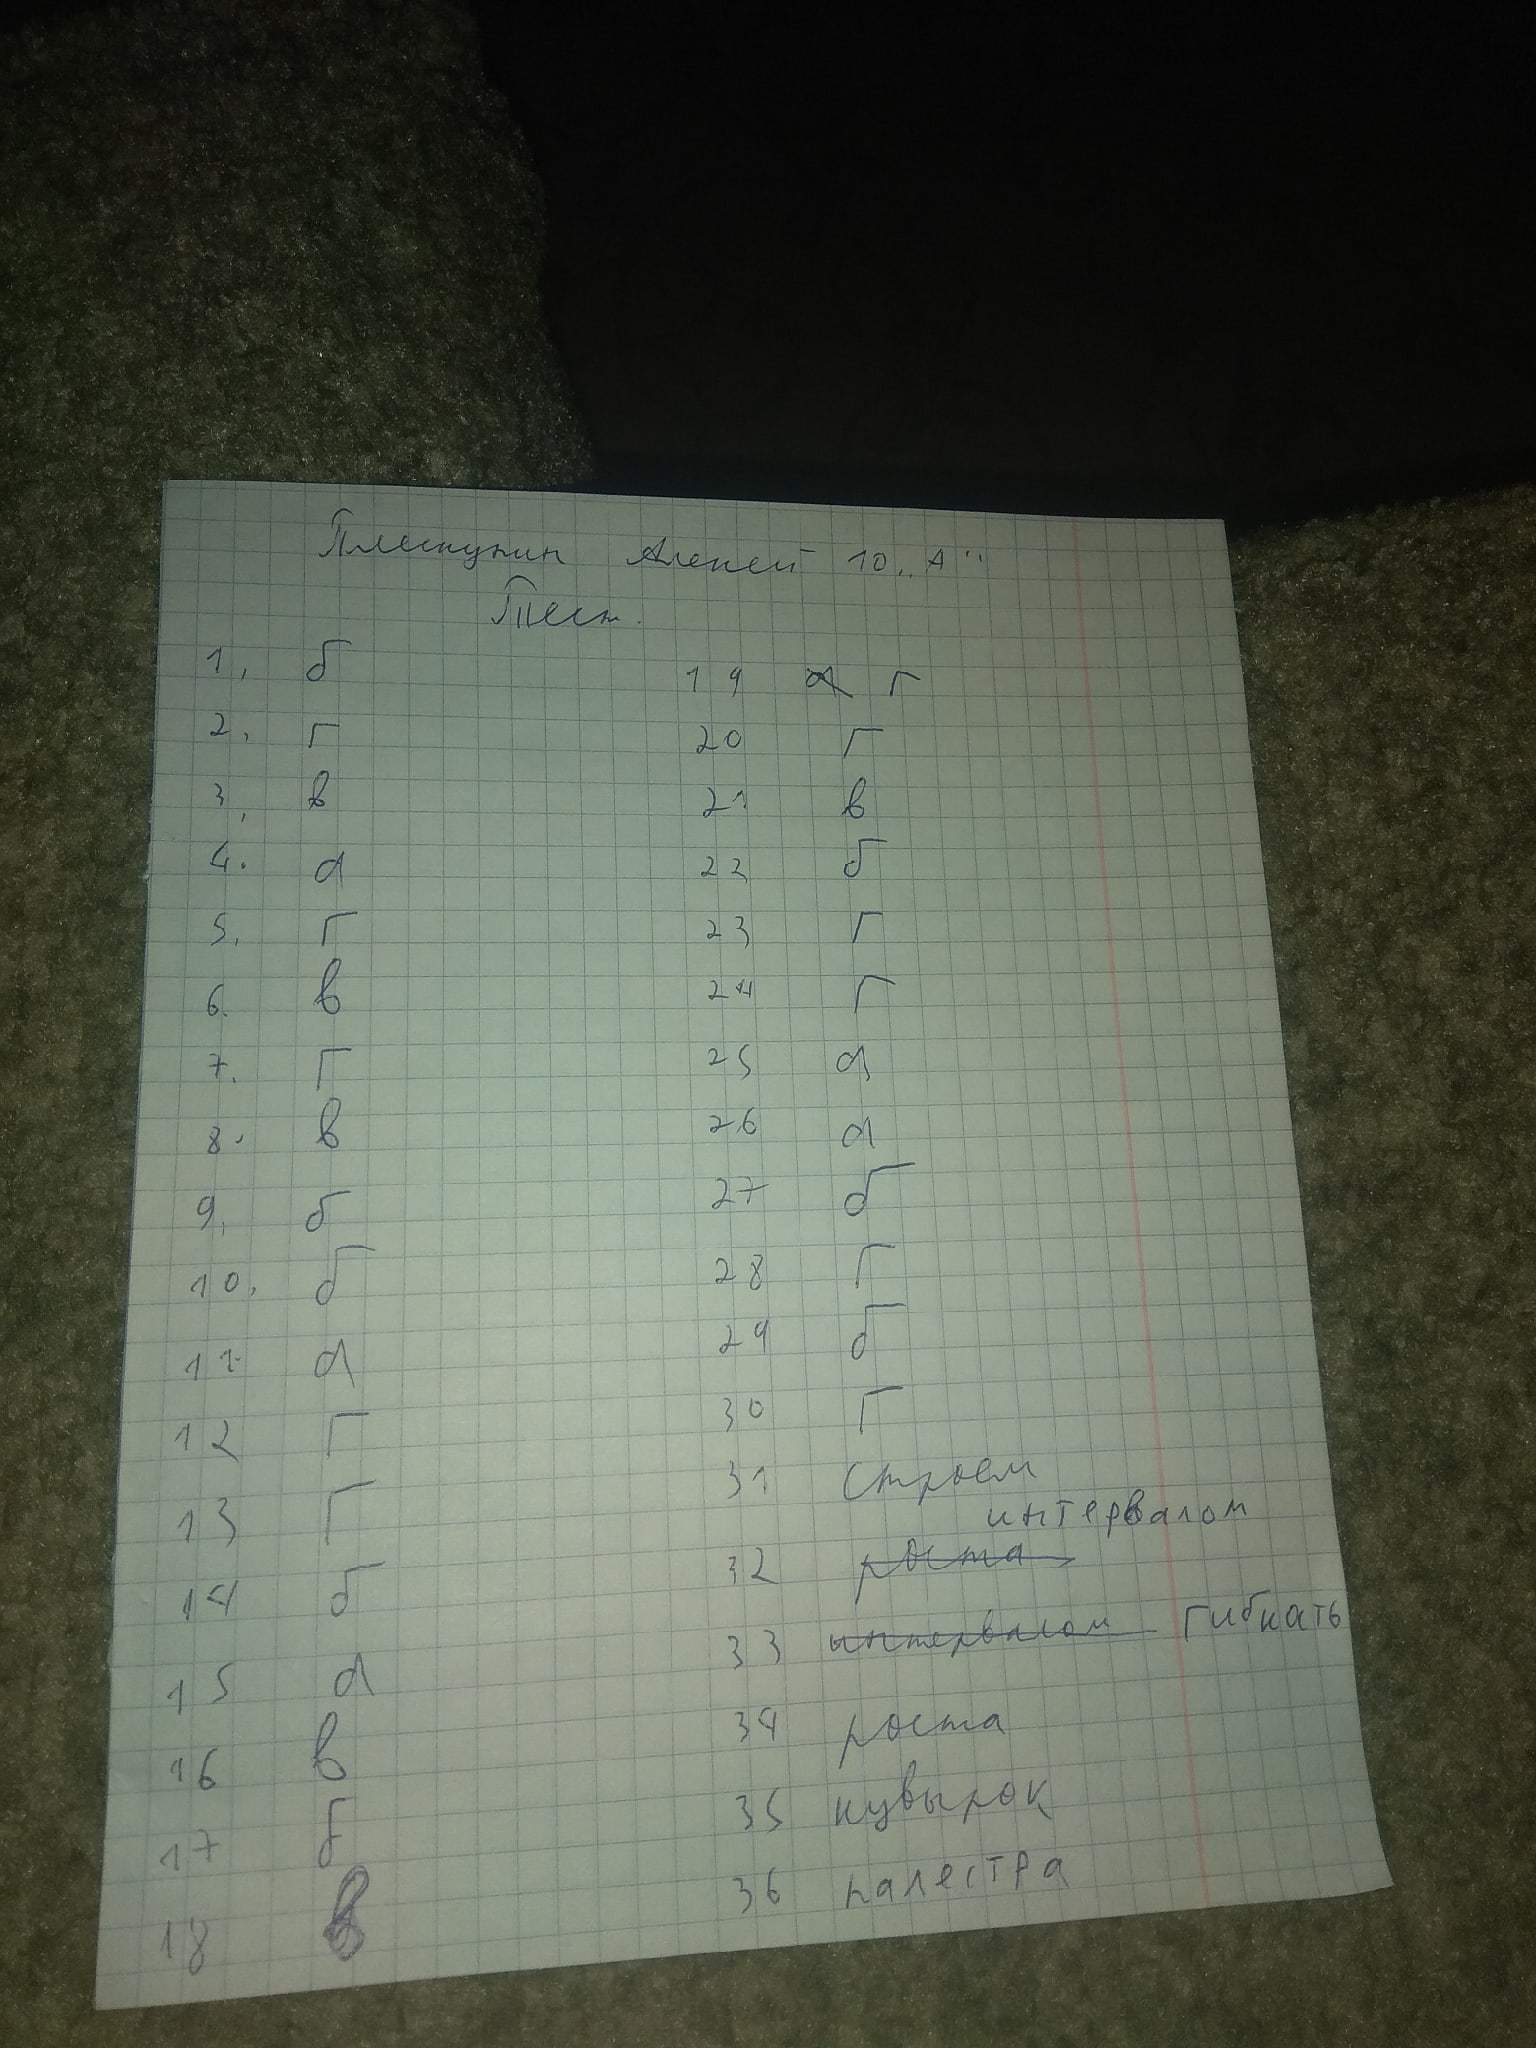 Плескунин Алексей 10 „А"
Тест.
1. б
2. г
3. в
4. а
5. г
6. в
7. г
8. в
9. б
10. б
11. а
12 г
13 г
14 б
15 а
16 в
17 б
18 в
19 а г
20 г
21 в
22 б
23 г
24 г
25 а
26 а
27 б
28 г
29 б
30 г
31 строем
интервалом
32 роста
33 интервалом гибкать
34 роста
35 кувырок
36 палестра